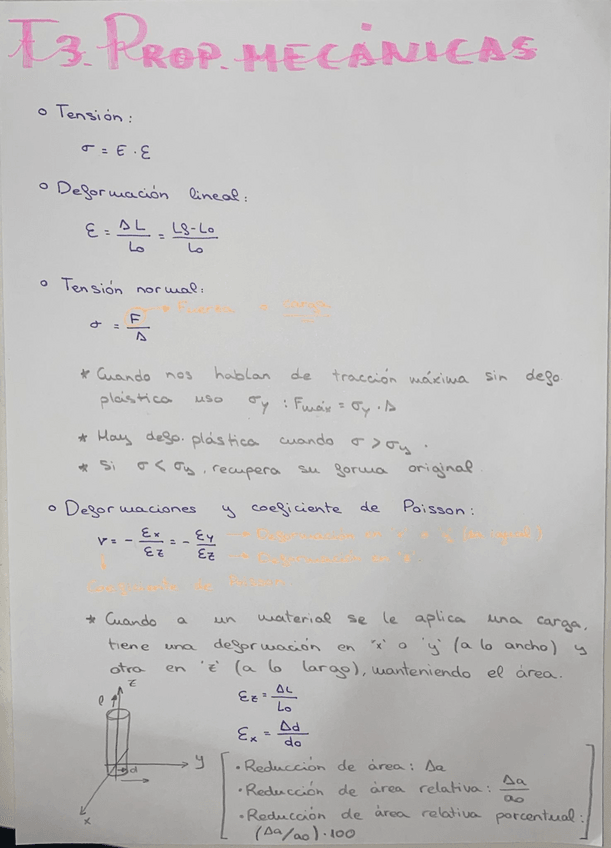 T3. PROP. MECÁNICAS
Tensión:
σ = E · ε
Deformación lineal:
ε = ΔL/Lo = Lf-Lo/Lo
Tensión normal:
σ = F/A → Fuerza o carga
* Cuando nos hablan de tracción máxima sin defo.
plástica uso σy : Fmáx = σy · A
* Hay defo. plástica cuando σ > σy.
* Si σ < σy, recupera su forma original.
Deformaciones y coeficiente de Poisson:
ν = - εx/εz = - εy/εz → Deformación en 'x' o 'y' (es igual)
→ Deformación en 'z'.
Coeficiente de Poisson
* Cuando a un material se le aplica una carga,
tiene una deformación en 'x' o 'y' (a lo ancho) y
otra en 'z' (a lo largo), manteniendo el área.
z
εz = ΔL/Lo
εx = Δd/do
d
y
x
• Reducción de área: Δa
• Reducción de área relativa: Δa/ao
• Reducción de área relativa porcentual:
(Δa/ao) · 100